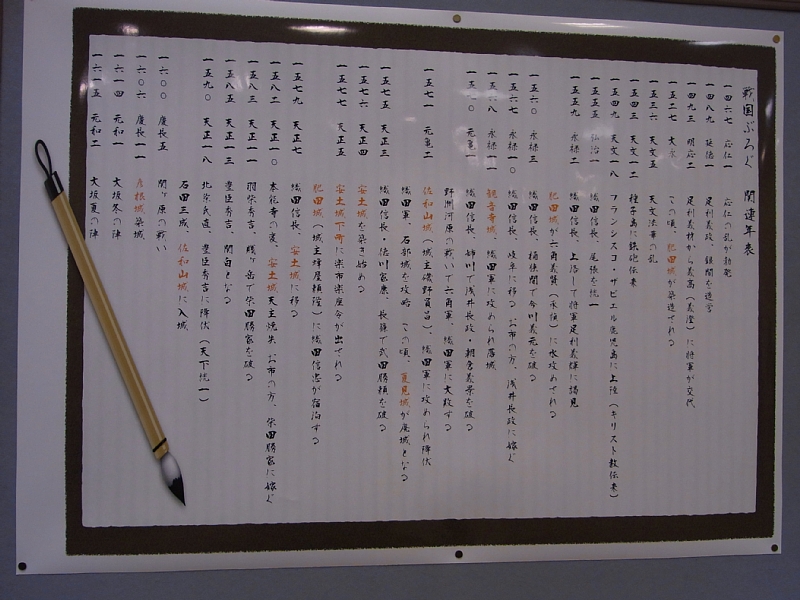 戦国ぶろぐ 関連年表
一四六七 応仁一 応仁の乱が勃発
一四八九 延徳一 足利義政、銀閣を造営
一四九三 明応二 足利義材から義高(義澄)に将軍が交代
一五二七 大永 この頃、肥田城が築造される
一五三六 天文五 天文法華の乱
一五四三 天文一二 種子島に鉄砲伝来
一五四九 天文一八 フランシスコ・ザビエル鹿児島に上陸(キリスト教伝来)
一五五五 弘治一 織田信長、尾張を統一
一五五九 永禄二 織田信長、上洛して将軍足利義輝に謁見
肥田城が六角義賢(承禎)に水攻めされる
一五六〇 永禄三 織田信長、桶狭間で今川義元を破る
一五六七 永禄一〇 織田信長、岐阜に移る お市の方、浅井長政に嫁ぐ
一五六八 永禄一一 観音寺城、織田軍に攻められ落城
一五七〇 元亀一 織田信長、姉川で浅井長政・朝倉義景を破る
野洲河原の戦いで六角軍、織田軍に大敗する
一五七一 元亀二 佐和山城(城主磯野員昌)、織田軍に攻められ降伏
織田軍、石部城を攻略 この頃、夏見城が廃城となる
一五七五 天正三 織田信長・徳川家康、長篠で武田勝頼を破る
一五七六 天正四 安土城を築き始める
一五七七 天正五 安土城下町に楽市楽座令が出される
肥田城(城主蜂屋頼隆)に織田信忠が宿泊する
一五七九 天正七 織田信長、安土城に移る
一五八二 天正一〇 本能寺の変、安土城天主焼失 お市の方、柴田勝家に嫁ぐ
一五八三 天正一一 羽柴秀吉、賤ヶ岳で柴田勝家を破る
一五八五 天正一三 豊臣秀吉、関白となる
一五九〇 天正一八 北条氏直、豊臣秀吉に降伏(天下統一)
石田三成、佐和山城に入城
一六〇〇 慶長五 関ヶ原の戦い
一六〇六 慶長一一 彦根城築城
一六一四 元和一 大坂冬の陣
一六一五 元和二 大坂夏の陣